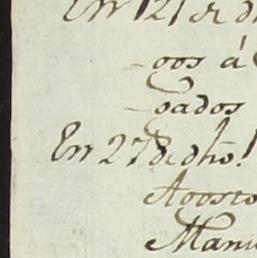 Em 21 de d
oos á
sados
Em 27 de dho.
Agosto
Manu